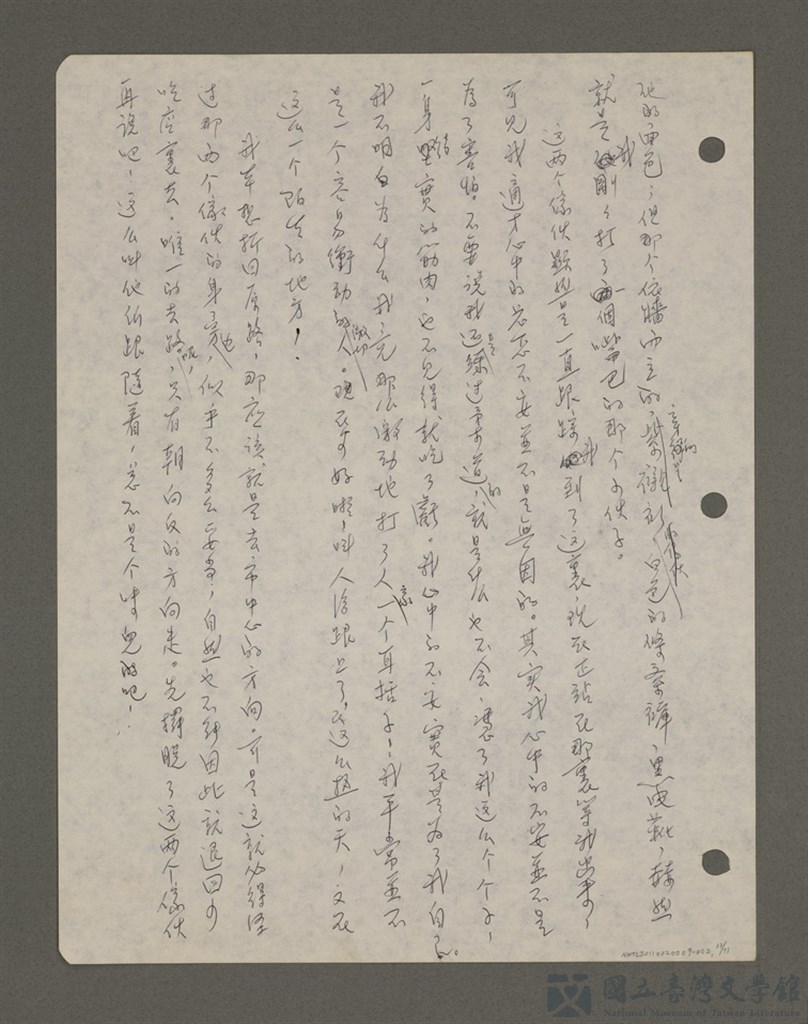 他的面色；但那个依牆而立的，紫襯衫、白色的條棻褲、黑皮靴，赫然
就是我剛剛打了一個嘴巴的那个小伙子。
这两个傢伙显然是一直跟踪我到了这裏，現在正站在那裏等我出來，
可見我適才心中的忐忑不安並不是無因的。其实我心中的不安並不是
為了害怕。不要說我还是練过柔道的，就是什么也不会，憑了我这么个个子，
一身堅實的筋肉，也不見得就吃了虧。我心中的不安實在是为了我自己。
我不明白为什么我竟那么激动地打了人家一个耳括子！我平常並不
是一个容易衝动的人。現在可好啦，叫人给跟上了，在这么 的天，又在
这么一个陌生的地方！
我本想折回原路，那应该就是去市中心的方向。可是这就必得经
过那两个傢伙的身旁，似乎不多么妥當，自然也不能因此就退回小
吃店裏去。唯一的去路呢，只有朝向反的方向走。先擺脫了这两个傢伙
再说吧！这么叫他们跟隨着，总不是个味兒的吧！
NMTL20110020009-002, 11/71
國立臺灣文學館
National Museum of Taiwan Literature